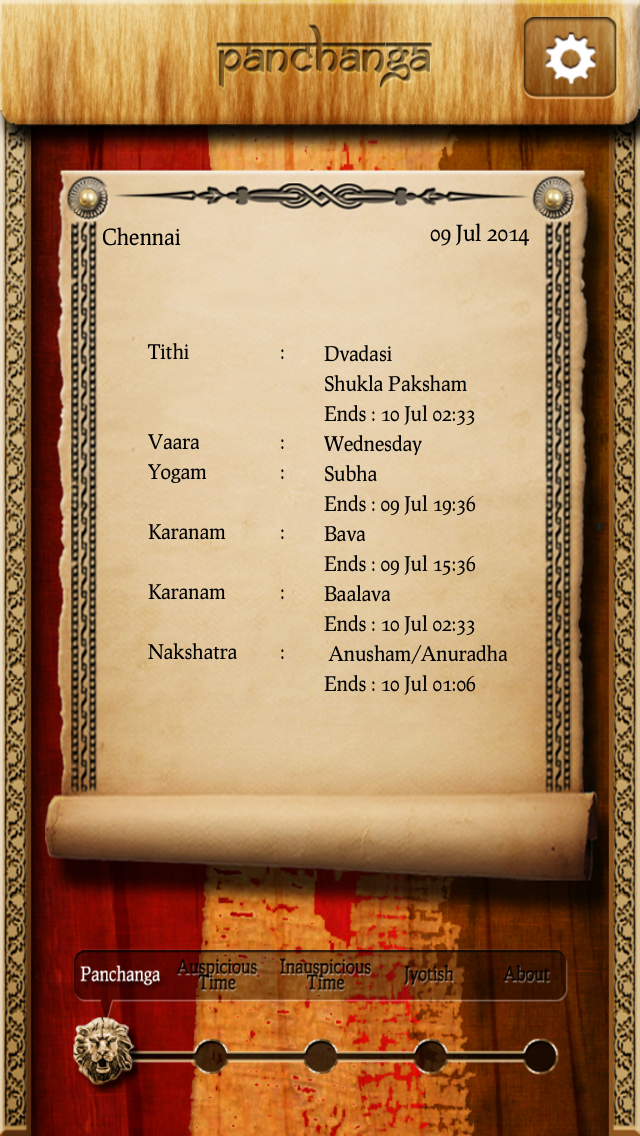 panchanga
Chennai 09 Jul 2014
Tithi : Dvadasi
Shukla Paksham
Ends : 10 Jul 02:33
Vaara : Wednesday
Yogam : Subha
Ends : 09 Jul 19:36
Karanam : Bava
Ends : 09 Jul 15:36
Karanam : Baalava
Ends : 10 Jul 02:33
Nakshatra : Anusham/Anuradha
Ends : 10 Jul 01:06
Panchanga Auspicious Time Inauspicious Time Jyotish About